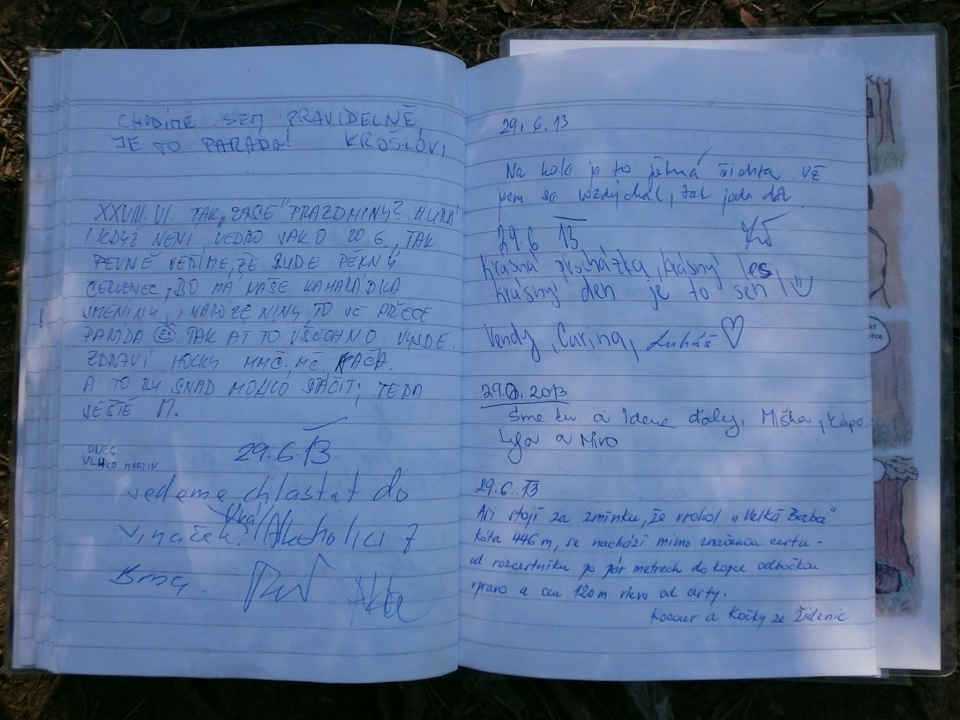 CHODÍME SEM PRAVIDELNĚ,
JE TO PARÁDA! KROŠLOVI
XXVIII. VI. TAK „ZASE“ PRÁZDNINY? HURÁ!
I KDYŽ NENÍ VEDRO JAKO 20.6, TAK
PEVNĚ VĚŘÍME, ŽE BUDE PĚKNÝ
ČERVENEC, BO MÁ NAŠE KAMARÁDKA
JMENINY, I NAROZENINY, TO JE PŘECE
PARÁDA TAK AŤ TO VŠECHNO VYJDE.
ZDRAVÍ HOLKY
A TO BY SNAD MOHLO STAČIT; TEDA
JEŠTĚ M.
29.6.13
DNES
VLHKO MARTIN
Jedeme chlastat do
Vinaček! Alkoholici z
Brna.
29. 6. 13
Na kole je to pěkná šichta. Už
jsem se vzdychal, tak jedu dál.
29.6 13
krásná procházka, krásný les
krásný den je to sen!
Vendy, Carina, Lukáš ♡
29.6. 2013
Sme tu a ideme ďalej. Miška, Kapo
Lyja a Miro
29.6. 13
Asi stojí za zmínku, že vrchol „Velká Baba“
kóta 446 m, se nachází mimo značenou cestu -
od rozcestníku po pár metrech do kopce odbočkou
vpravo a cca 120 m vlevo od cesty.
Kocour a Kočky ze Židenic